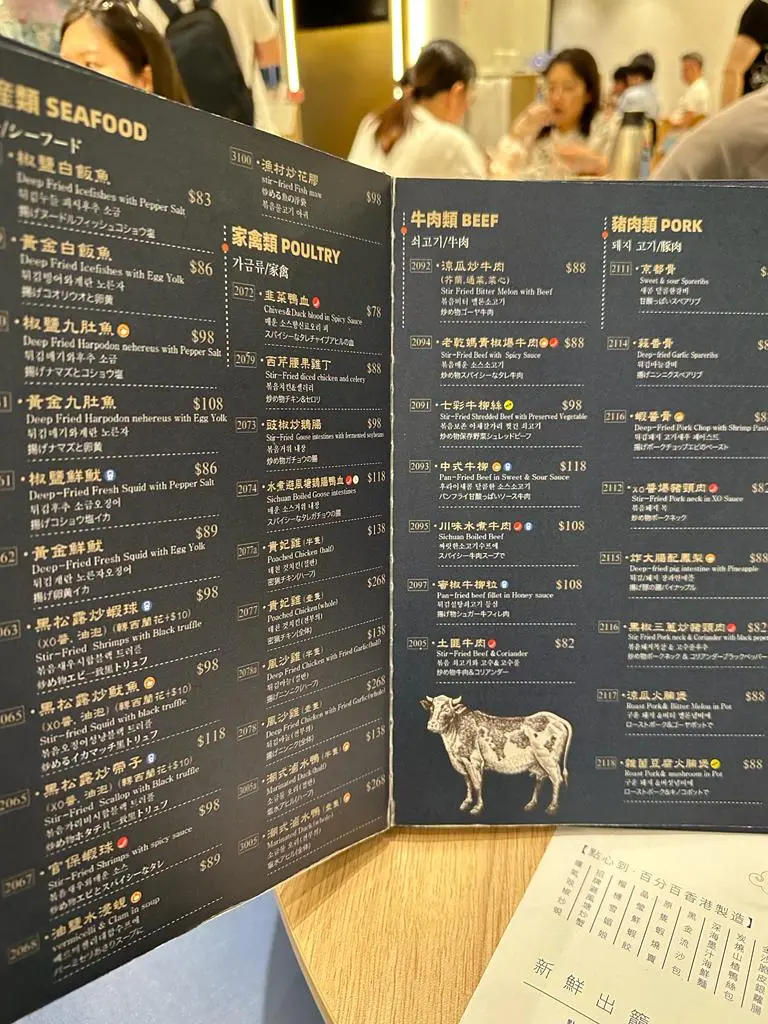 產類 SEAFOOD
/シーフード
椒鹽白飯魚
Deep Fried Icefishes with Pepper Salt
$83
튀김누들 피시후추 소금
揚げヌードルフィッシュコショウ塩
黃金白飯魚
Deep Fried Icefishes with Egg Yolk
$86
揚げコオリウオと卵黄
椒鹽九肚魚
$98
Deep Fried Harpodon nehereus with Pepper Salt
튀김메기와후추 소금
揚げナマズとコショウ塩
黃金九肚魚
$108
Deep Fried Harpodon nehereus with Egg Yolk
튀김메기와계란 노른자
揚げナマズと卵黄
椒鹽鮮魷
$86
Deep-Fried Fresh Squid with Pepper Salt
튀김후추 소금오징어
揚げコショウ塩イカ
62
黃金鮮魷
$89
Deep-Fried Fresh Squid with Egg Yolk
튀김 계란 노른자오징어
揚げ卵黄イカ
063
黑松露炒蝦球
$98
(XO醬, 油泡) (轉百蘭花+$10)
Stir-Fried Shrimps with Black truffle
볶음새우시합블랙 트러플
炒め物エビ一致黒トリュフ
065
黑松露炒魷魚
$98
(XO醬, 油泡) (轉百蘭花+$10)
Stir-fried Squid with black truffle
炒めるイカマッチ黒トリュフ
2065
黑松露炒帶子
$118
(XO醬, 油泡) (轉百蘭花+$10)
Stir-Fried Scallop with Black truffle
볶음가리비시합블랙 트러플
炒め物ホタテ貝一致黒トリュフ
2067
宮保蝦球
$98
Stir-Fried Shrimps with spicy sauce
炒め物エビとスパイシーなタレ
2068
油鹽水浸蜆
$89
vermicelli & Clam in soup
バーミセリあさりスープに
3100
漁村炒花膠
stir-fried Fish maw
$98
炒める魚の浮袋
家禽類 POULTRY
가금류/家禽
2072
韮菜鴨血
Chives&Duck blood in Spicy Sauce
$78
スパイシーなタレチャイブアヒルの血
2079
西芹腰果雞丁
Stir-Fried diced chicken and celery
$88
볶음치킨&샐러리
炒め物チキン&セロリ
2073
豉椒炒鵝腸
$98
Stir-Fried Goose intestines with fermented soybeans
볶음거위 내장
炒め物ガチョウの腸
2074
水煮避風塘鵝腸鴨血
$118
Sichuan Boiled Goose intestines
매운 소스거위 내장
スパイシーなタレガチョウの腸
2077a
貴妃雞(半隻)
$138
Poached Chicken (half)
密猟チキン(ハーフ)
2077
貴妃雞(壹隻)
$268
Poached Chicken(whole)
密猟チキン(全体)
2078a
風沙雞(半隻)
$138
Deep Fried Chicken with Fried Garlic(half)
揚げニンニク(ハーフ)
2078
風沙雞(壹隻)
$268
Deep Fried Chicken with Fried Garlic(whole)
揚げニンニク(全体)
3005a
潮式滷水鴨(半隻)
$138
Marinated Duck(half)
塩水アヒル(ハーフ)
3005
潮式滷水鴨(壹隻)
$268
Marinated Duck(whole)
塩水アヒル(全体)
牛肉類 BEEF
쇠고기/牛肉
2092
涼瓜炒牛肉
$88
(芥蘭,通菜,菜心)
Stir Fried Bitter Melon with Beef
볶음비터 멜론소고기
炒め物ゴーヤ牛肉
2094
老乾媽青椒爆牛肉
$88
Stir-Fried Beef with Spicy Sauce
볶음매운 소스소고기
炒め物スパイシーなタレ牛肉
2091
七彩牛柳絲
$98
Stir-Fried Shredded Beef with Preserved Vegetable
炒め物保存野菜シュレッドビーフ
2093
中式牛柳
$118
Pan-Fried Beef in Sweet & Sour Sauce
후라이새콤 달콤한 소스소고기
パンフライ甘酸っぱいソース牛肉
2095
川味水煮牛肉
$108
Sichuan Boiled Beef
스パイシー牛肉スープで
2097
蜜椒牛柳粒
$108
Pan-fried beef fillet in Honey sauce
揚げシュガー牛フィレ肉
2005
土匪牛肉
$82
Stir-Fried Beef & Coriander
볶음 쇠고기와 고수&고수풀
炒め物牛肉&コリアンダー
豬肉類 PORK
돼지 고기/豚肉
2111
京都骨
Sweet & sour Spareribs
새콤 달콤한갈비
甘酸っぱいスペアリブ
2114
蒜香骨
$8
Deep-fried Garlic Spareribs
튀김마늘갈비
揚げニンニクスペアリブ
2116
蝦醬骨
Deep-fried Pork Chop with Shrimp Paste
튀김돼지 고기새우 페이스트
揚げポークチョップエビのペースト
2112
XO醬爆豬頸肉
$82
Stir-Fried Pork neck in XO Sauce
볶음돼지 목
炒め物ポークネック
2115
炸大腸配鳳梨
$88
Deep-fried pig intestine with Pineapple
튀김/돼지 장파인애플
揚げ豚の腸パイナップル
2116
黑椒三蔥炒豬頸肉
$82
Stir Fried Pork neck & Coriander with black pepper
炒め物ポークネック & コリアンダーブラックペッパー
2117
涼瓜火腩煲
$88
Roast Pork& Bitter Melon in Pot
ローストポーク&ゴーヤポットで
2118
雜菌豆腐火腩煲
$88
Roast Pork& mushroom in Pot
ローストポーク&キノコポットで
【點心到·百分百香港製造】
金沙脆皮銀蘿
炭燒山楂鴨絲包
深海墨汁海鮮麵
黑金流沙包
原隻蝦燒賣
晶瑩鮮蝦餃
榴槤雪媚娘
招牌避風塘炒蟹
鑊氣豉椒炒蜆
新鮮出籠